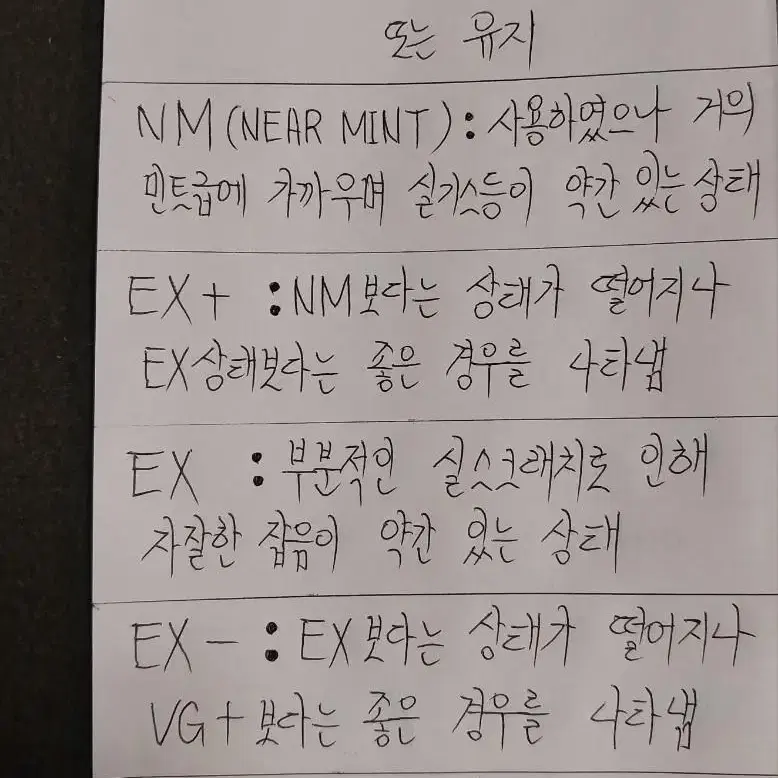 또는 유지
NM(NEAR MINT) : 사용하였으나 거의
민트급에 가까우며 실기스등이 약간 있는 상태
EX+ : NM보다는 상태가 떨어지나
EX상태보다는 좋은 경우를 나타냄
EX : 부분적인 실스크래치로 인해
자잘한 잡음이 약간 있는 상태
EX- : EX보다는 상태가 떨어지나
VG+보다는 좋은 경우를 나타냄